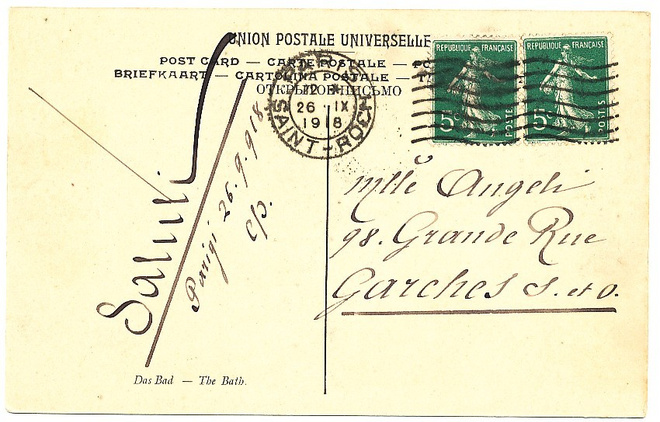 UNION POSTALE UNIVERSELLE
POST CARD — CARTE POSTALE — PO
BRIEFKAART — CARTOLINA POSTALE —
ОТКРЫТОЕ ПИСЬМО
26 IX
1918
SAINT-ROCH
REPUBLIQUE FRANÇAISE
5c
POSTES
REPUBLIQUE FRANÇAISE
5c
POSTES
Saluti
Parigi 26-9-918
c/p.
Mlle Angeli
98. Grande Rue
Garches S. et O.
Das Bad — The Bath.